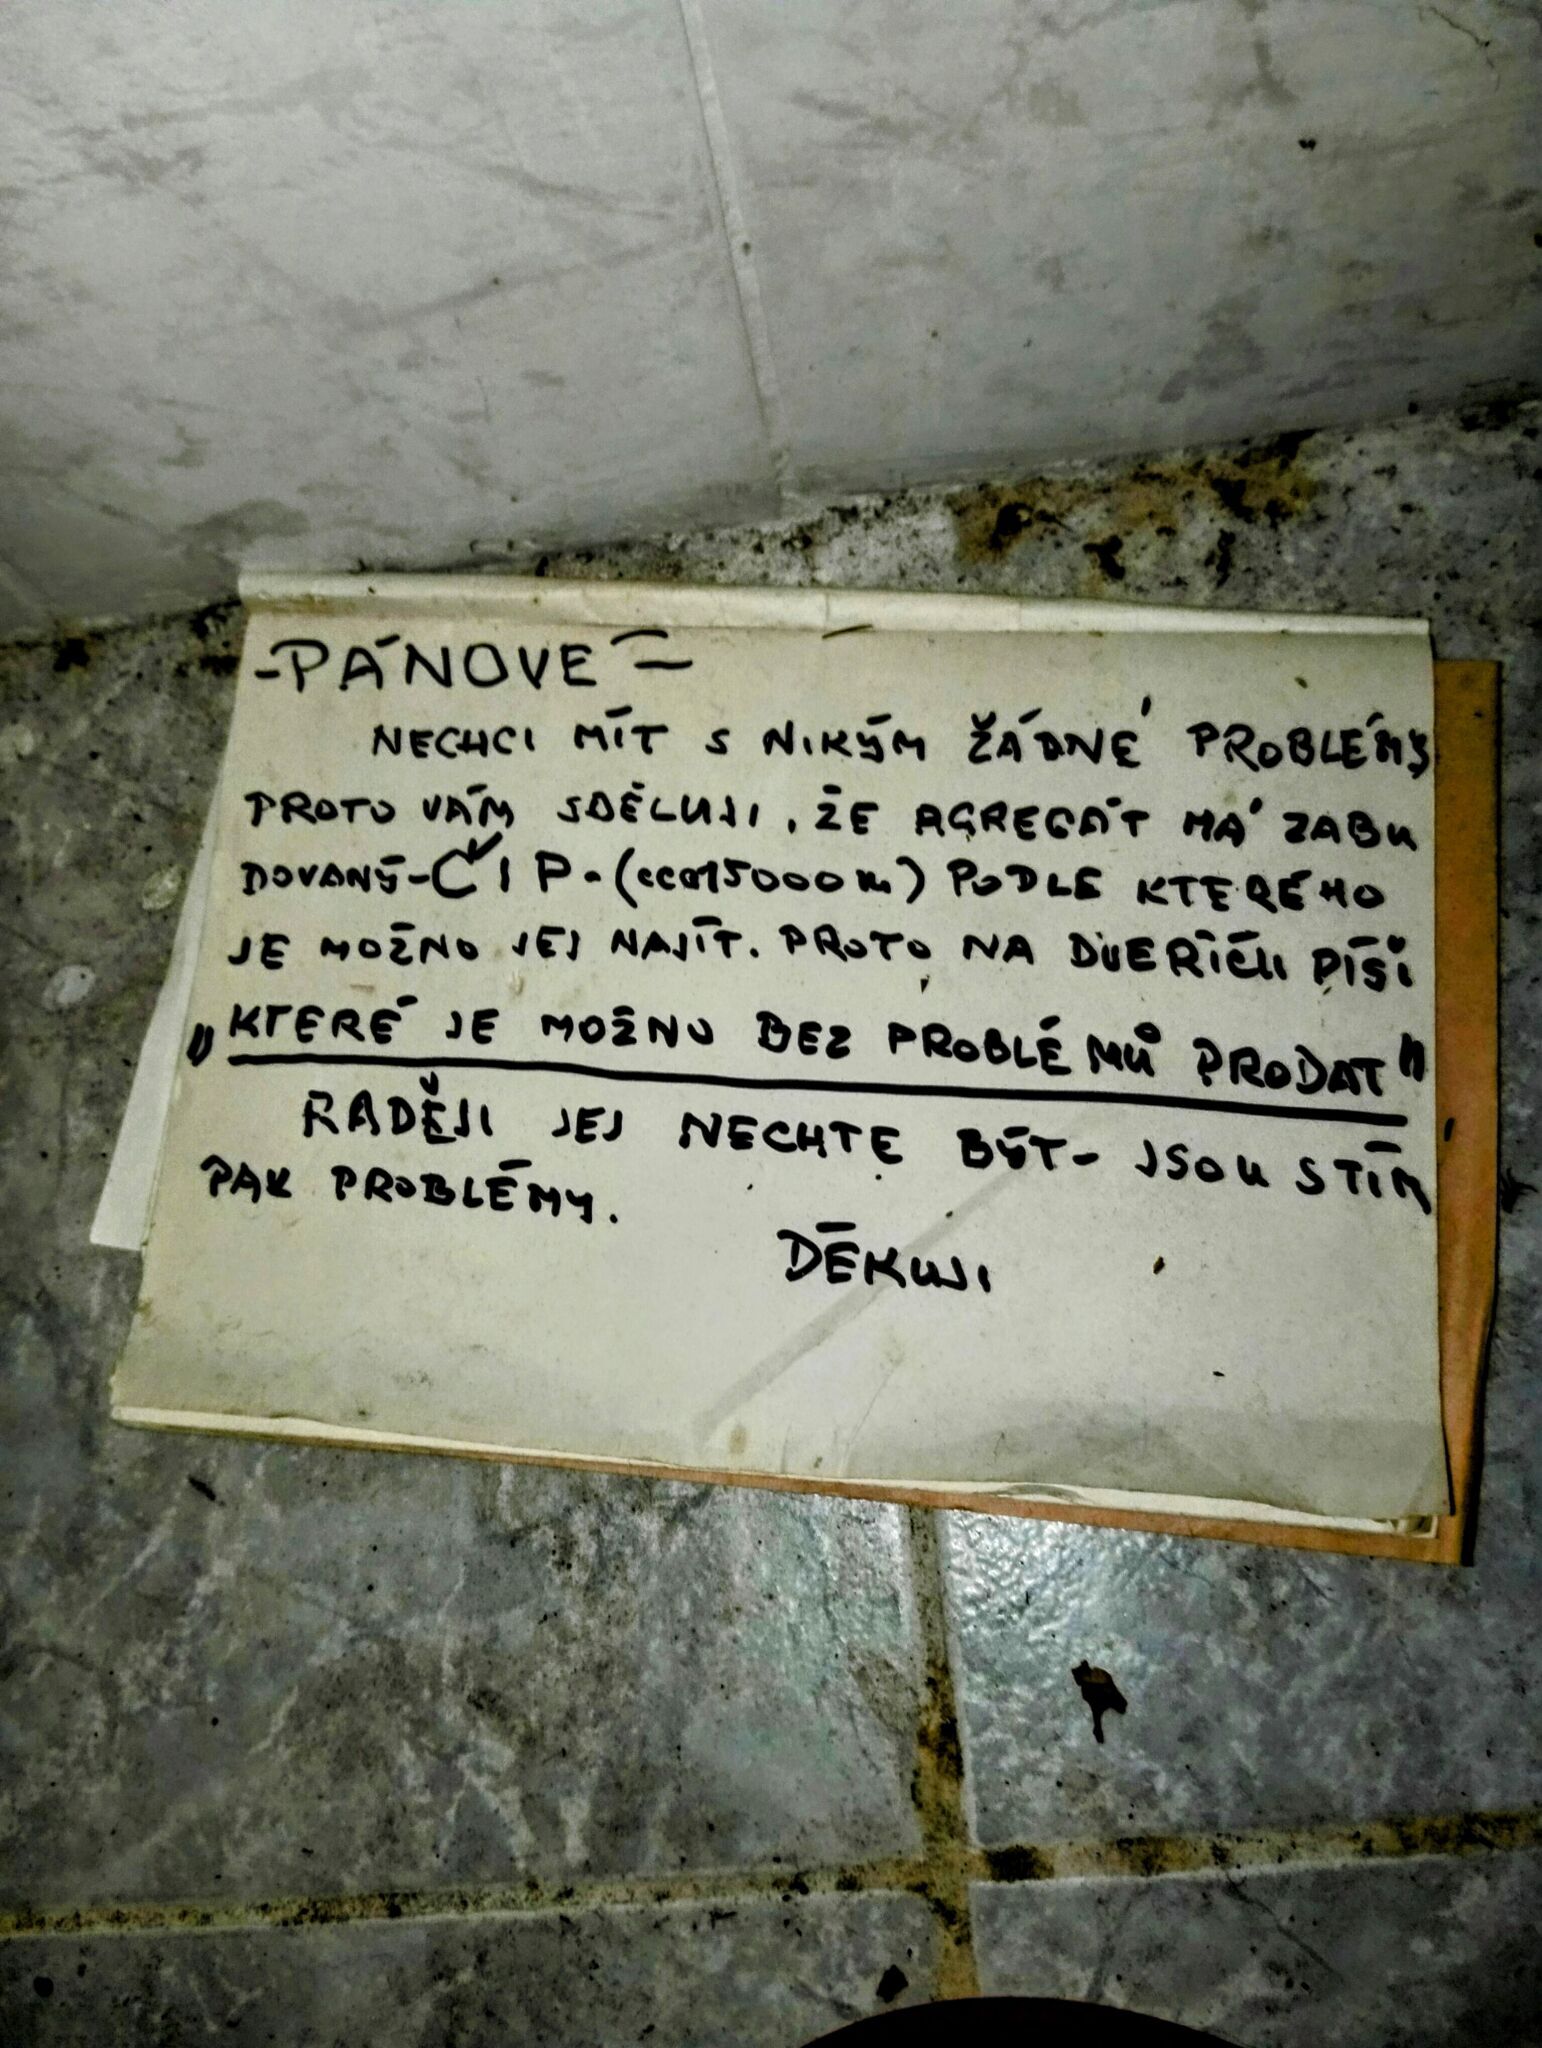 -PÁNOVÉ-
NECHCI MÍT S NIKÝM ŽÁDNÉ PROBLÉMY
PROTO VÁM SDĚLUJI, ŽE AGREGÁT MÁ ZABU
DOVANÝ-ČIP-(cca15000m) PODLE KTERÉHO
JE MOŽNO JEJ NAJÍT. PROTO NA DVEŘÍCH PÍŠI
„KTERÉ JE MOŽNO BEZ PROBLÉMŮ PRODAT"
RADĚJI JEJ NECHTE BÝT- JSOU STÍM
PAK PROBLÉMY.
DĚKUJI